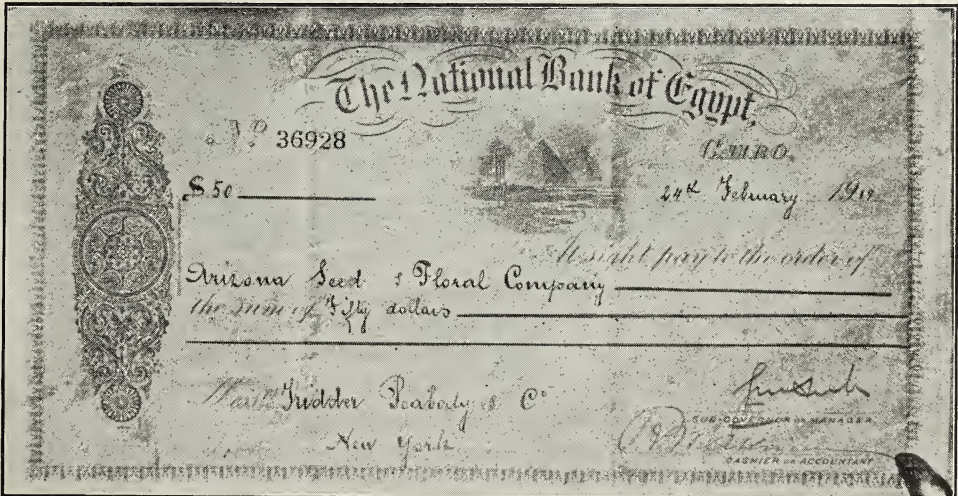 The National Bank of Egypt,
No 36928
CAIRO,
$ 50
24th February 19
At sight pay to the order of
Arizona Seed & Floral Company
the sum of Fifty dollars
Kidder Peabody & Co
New York
SUB-GOVERNOR OR MANAGER
CASHIER OR ACCOUNTANT